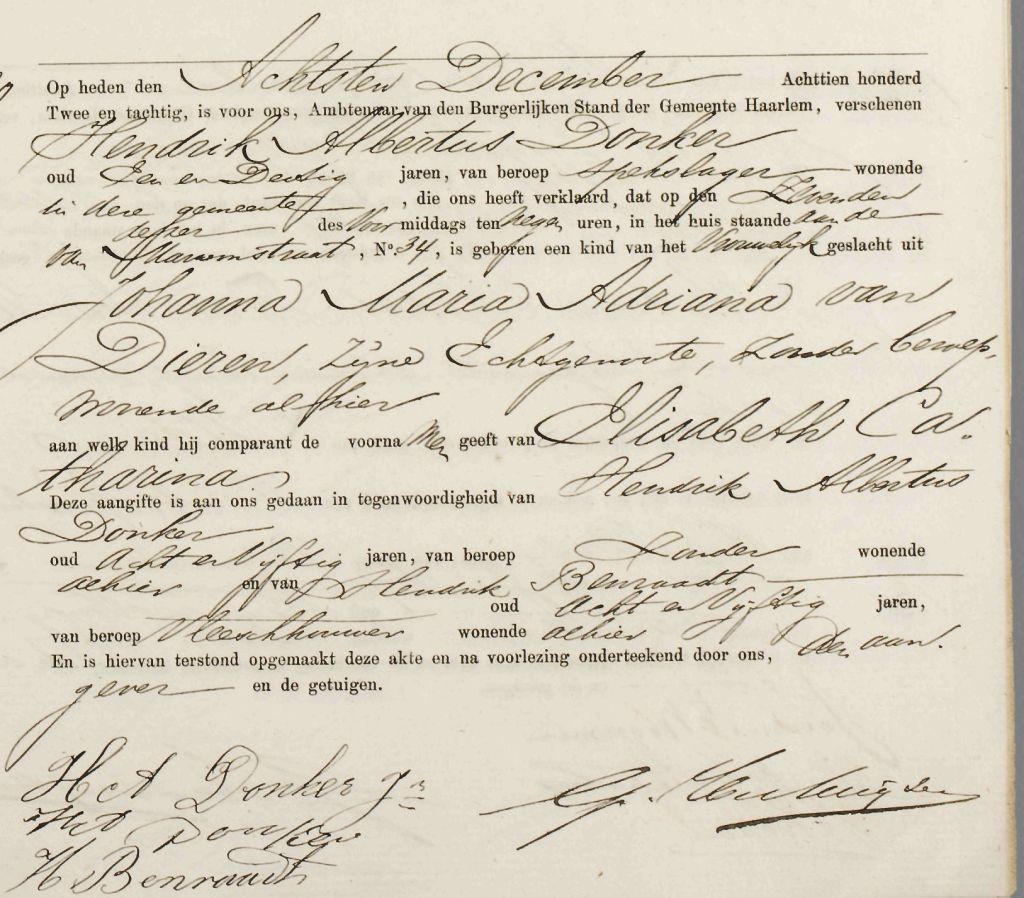 Op heden den Achtsten December Achttien honderd
Twee en tachtig, is voor ons, Ambtenaar van den Burgerlijken Stand der Gemeente Haarlem, verschenen
Hendrik Albertus Donker
oud Een en Dertig jaren, van beroep spekslager wonende
in deze gemeente, die ons heeft verklaard, dat op den Zevenden
dezer des Voor middags ten negen uren, in het huis staande aan de
van Marumstraat, No. 34, is geboren een kind van het Vrouwelijk geslacht uit
Johanna Maria Adriana van
Dieren, zijne Echtgenoote, zonder beroep,
wonende alhier
aan welk kind hij comparant de voorna men geeft van Elisabeth Ca-
tharina
Deze aangifte is aan ons gedaan in tegenwoordigheid van Hendrik Albertus
Donker
oud Acht en Vijftig jaren, van beroep Zonder wonende
alhier en van Hendrik Benraadt
oud Acht en Vijftig jaren,
van beroep Vleeschhouwer wonende alhier
En is hiervan terstond opgemaakt deze akte en na voorlezing onderteekend door ons, den aan-
gever en de getuigen.
H A Donker Jr
H A Donker
H Benraadt